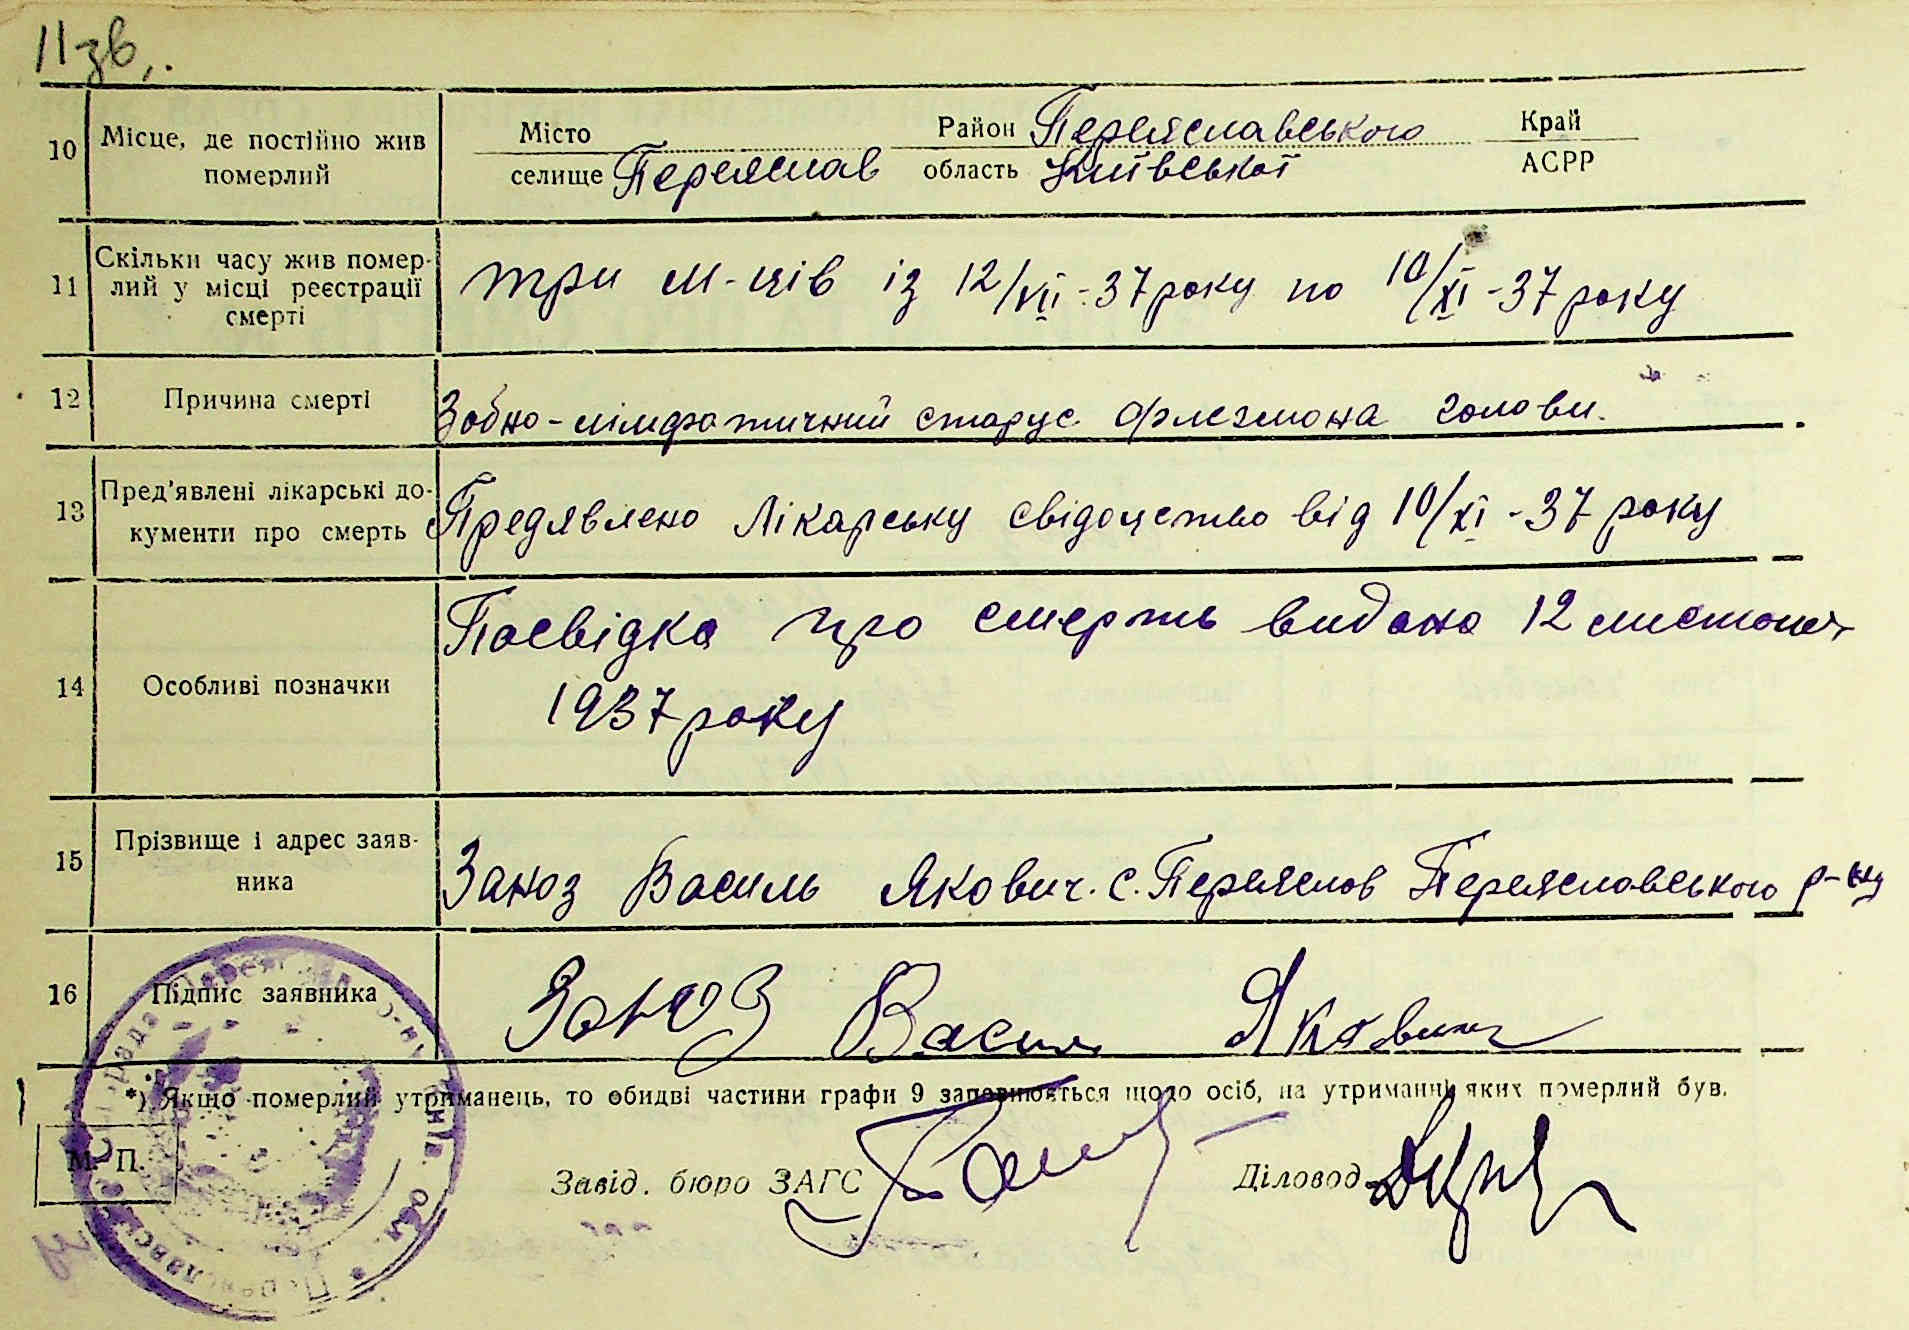 11зв.
10 Місце, де постійно жив померлий
Місто селище Переяслав Район Переяславського область Київської Край АСРР
11 Скільки часу жив помер-
лий у місці реєстрації
смерті
три м-ців із 12/VII-37 року по 10/XI-37 року
12 Причина смерті
Зобно-лімфатичний статус. Флегмона голови.
13 Пред'явлені лікарські до-
кументи про смерть
Предявлено Лікарську свідоцтво від 10/XI-37 року
14 Особливі позначки
Посвідка про смерть видана 12 листопат
1937 року
15 Прізвище і адрес заяв-
ника
Заноз Василь Якович. с. Переяслов Переяславського р-ну
16 Підпис заявника
Заноз Васил Якович
*) Якщо померлий утриманець, то обидві частини графи 9 заповнюється щодо осіб, на утриманні яких померлий був.
М. П.
Завід. бюро ЗАГС
Діловод